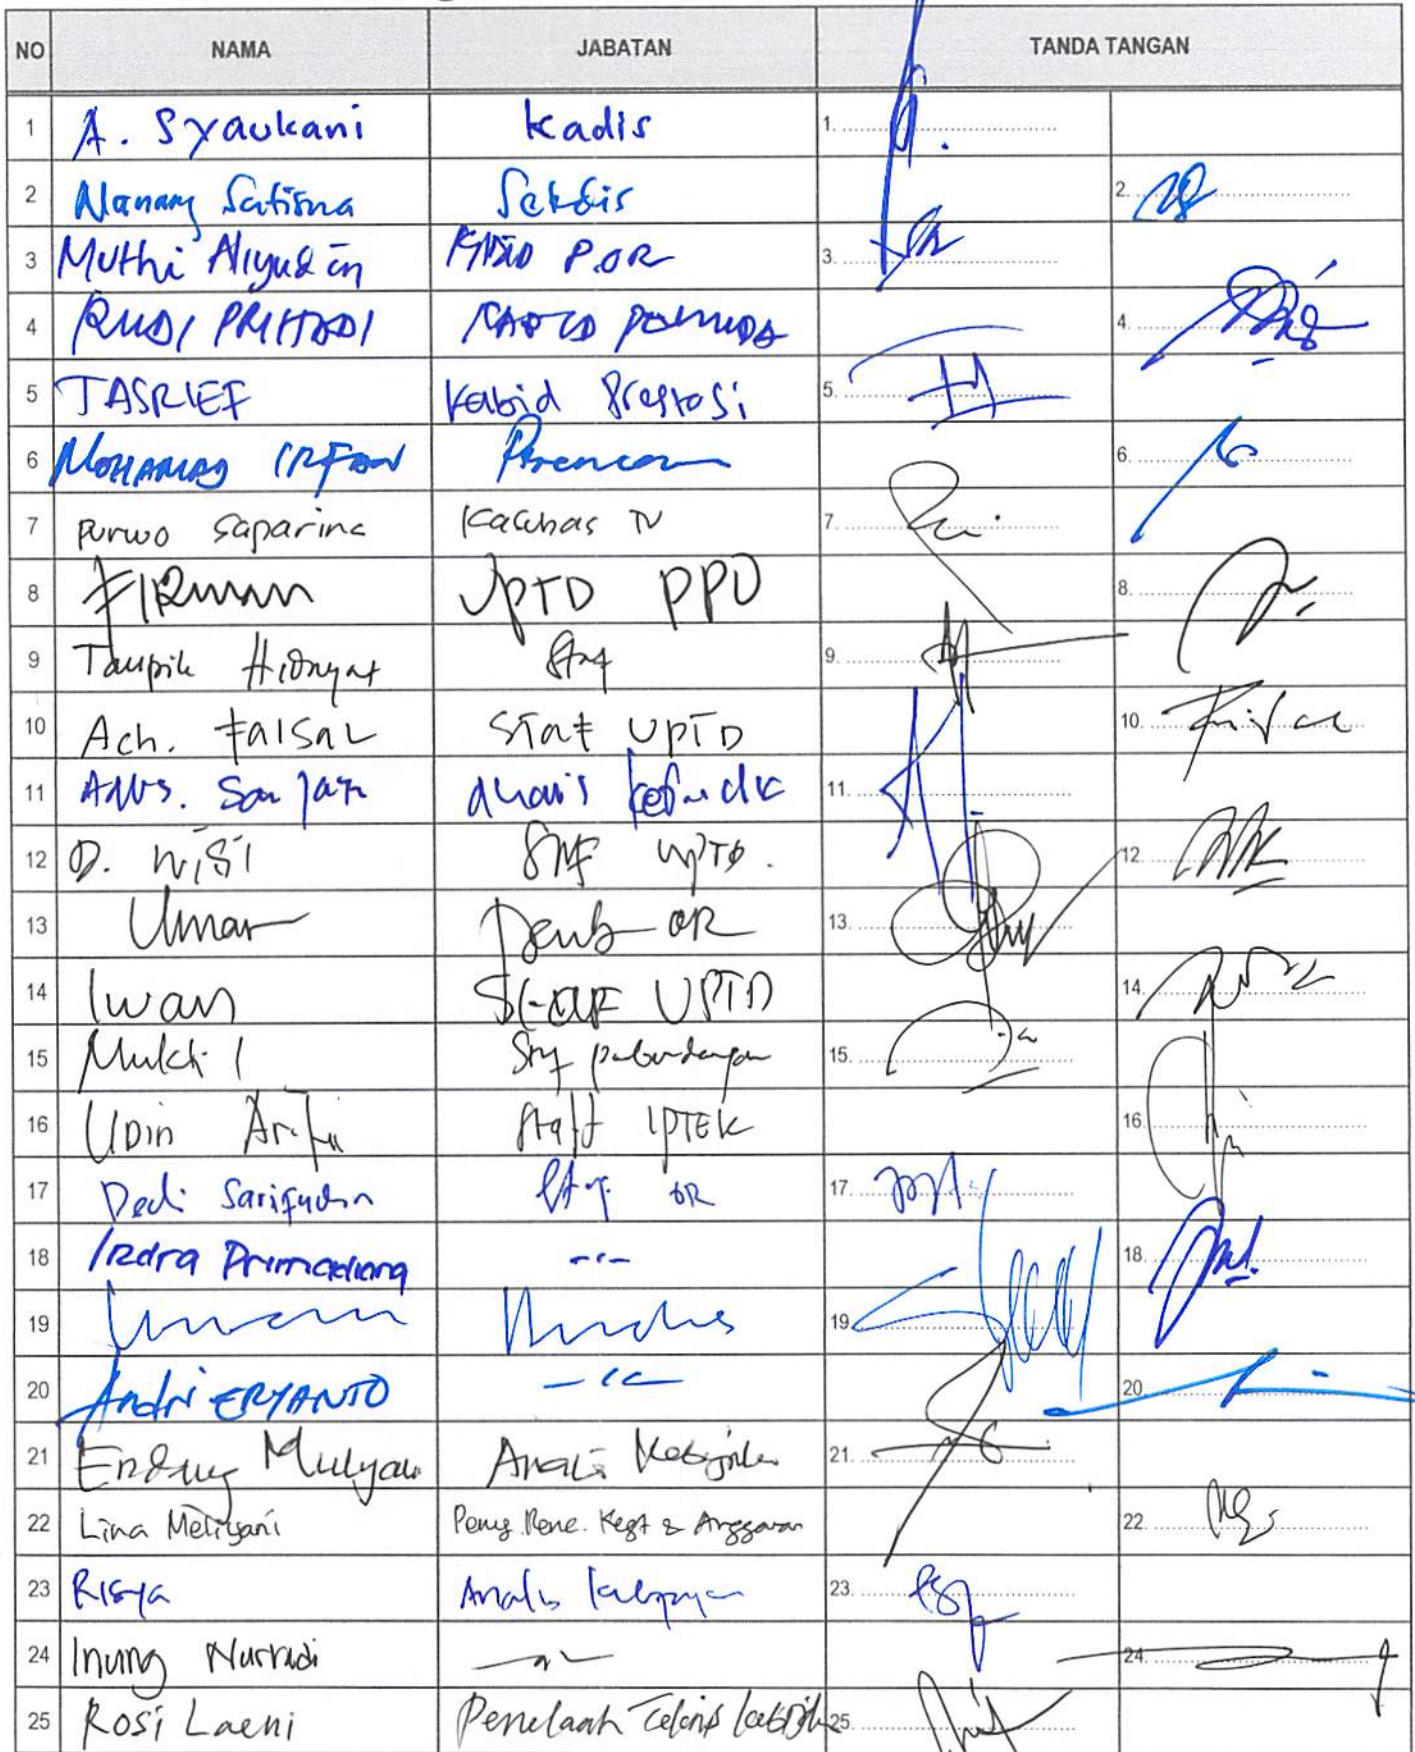 NO NAMA JABATAN TANDA TANGAN
1 A. Syaukani Kadis 1.
2 Nanang Sutisna Sekdis 2.
3 Muthi Aliyudin KABID POR 3.
4 RUDI PRIHADI KABID PEMUDA 4.
5 TASRIEF Kabid Prestasi 5.
6 MOHAMAD IRFAN Perencana 6.
7 Purwo Saparina 7.
8 FIRMAN UPTD PPO 8.
9 Taupik Hidayat Staf 9.
10 Ach. FaisaL STaf UPTD 10.
11 Agus. Sanjaya 11.
12 D. Staf UPTD. 12.
13 Umar OR 13.
14 Iwan Staf UPTD 14.
15 Mukti Staf 15.
16 UDin Arifin Staff IPTEK 16.
17 Dedi Sarifudin Staf OR 17.
18 Indra Primadiana -"- 18.
19 19.
20 Andri ERYANTO -"- 20.
21 Endang Mulyani Analis Kebijakan 21.
22 Lina Meliyani Peny. Renc. Kegt & Anggaran 22.
23 Risya Analis 23.
24 Inung Nurhadi -"- 24.
25 Rosi Laeni Penelaah Teknis Kebijak 25.